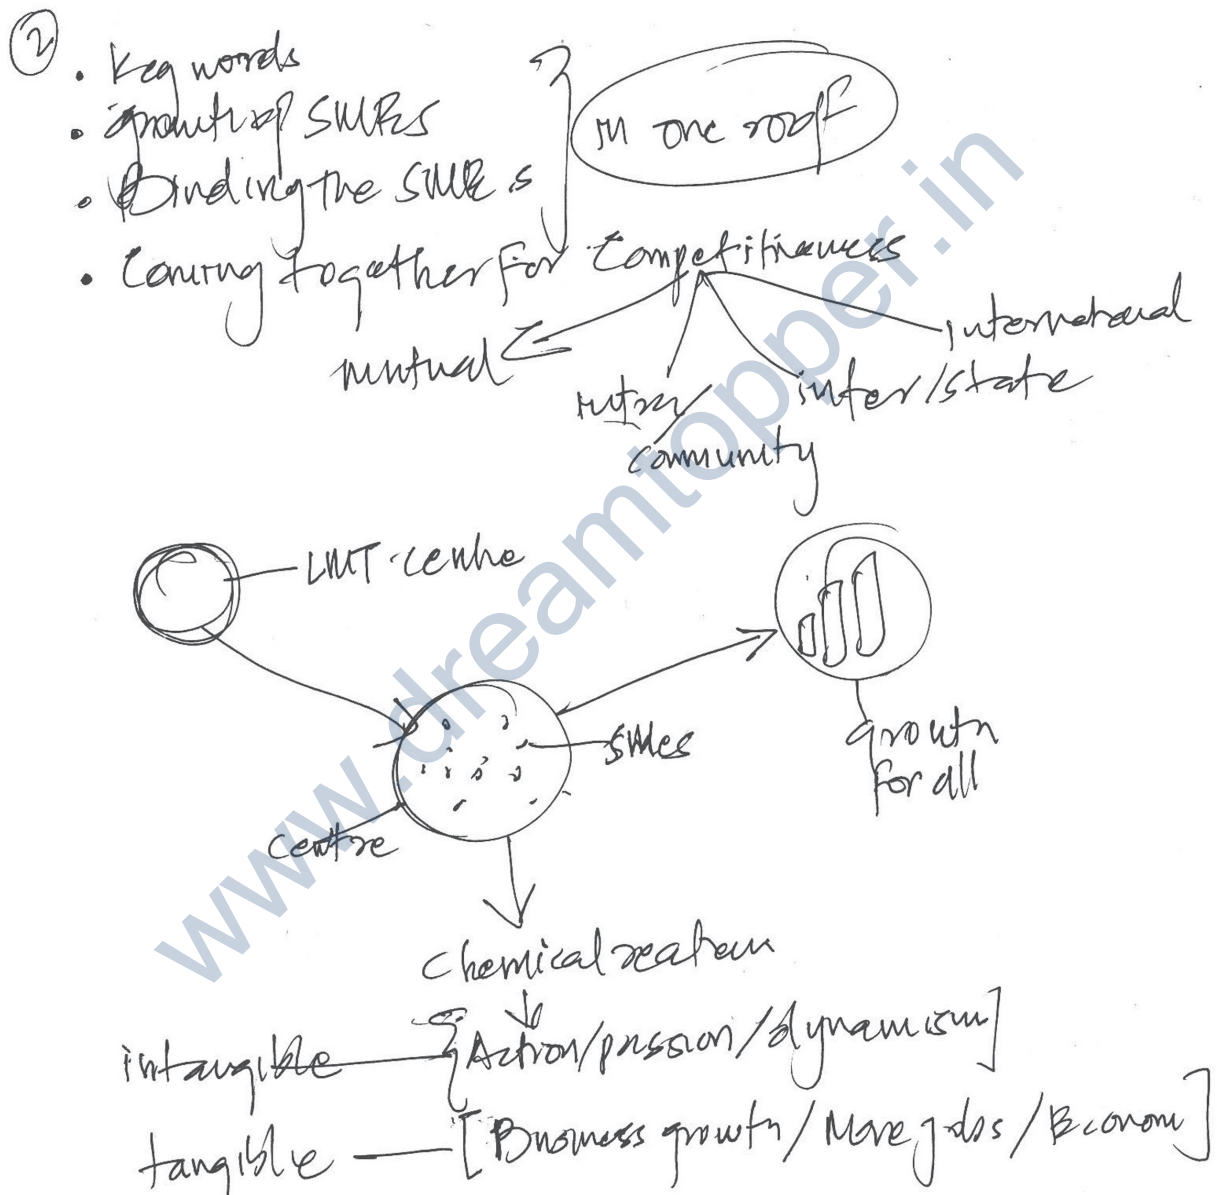 2
. Key words
. growth of SMEs
. Binding the SMEs
. Coming together for Competitiveness
in one roof
mutual
intra/
community
inter/state
international
LMT centre
SMEs
centre
growth
for all
Chemical reaction
intangible
[Action/passion/dynamism]
tangible
[Business growth/More jobs/Econom]
www.dreamtopper.in